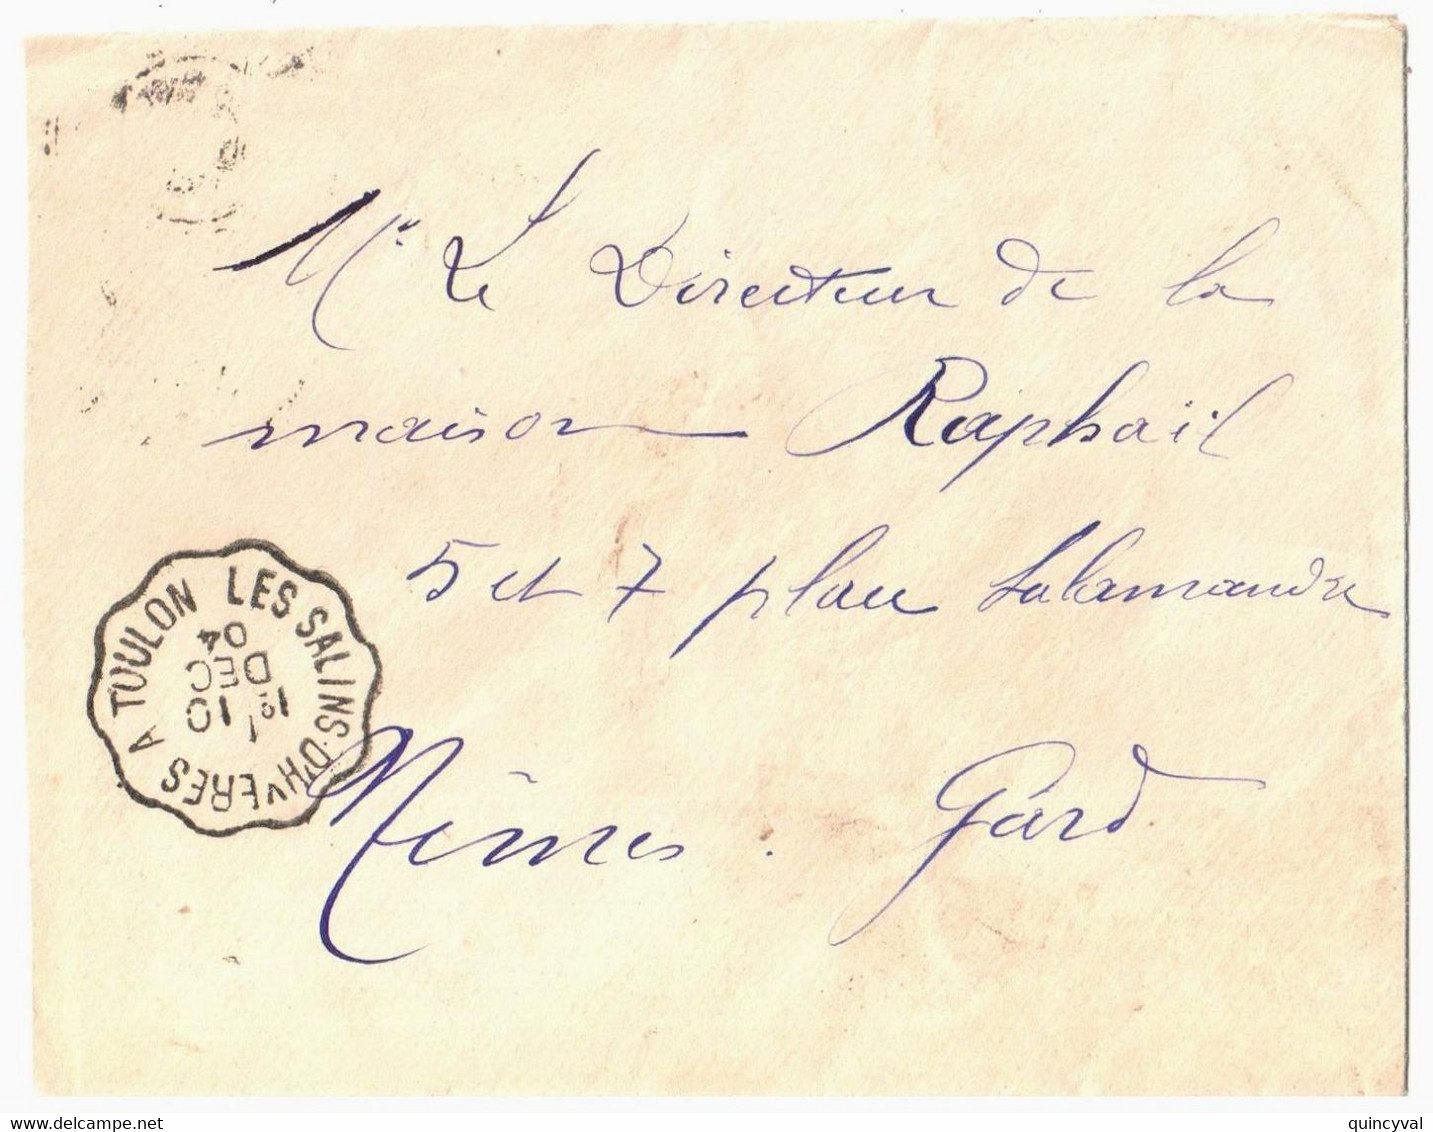 Mr Le Directeur de la
maison Raphaël
5 et 7 place Salamandre
Nîmes. Gard
LES SALINS-D'HYERES A TOULON
1º
10
DEC
04
www.delcampe.net
quincyval